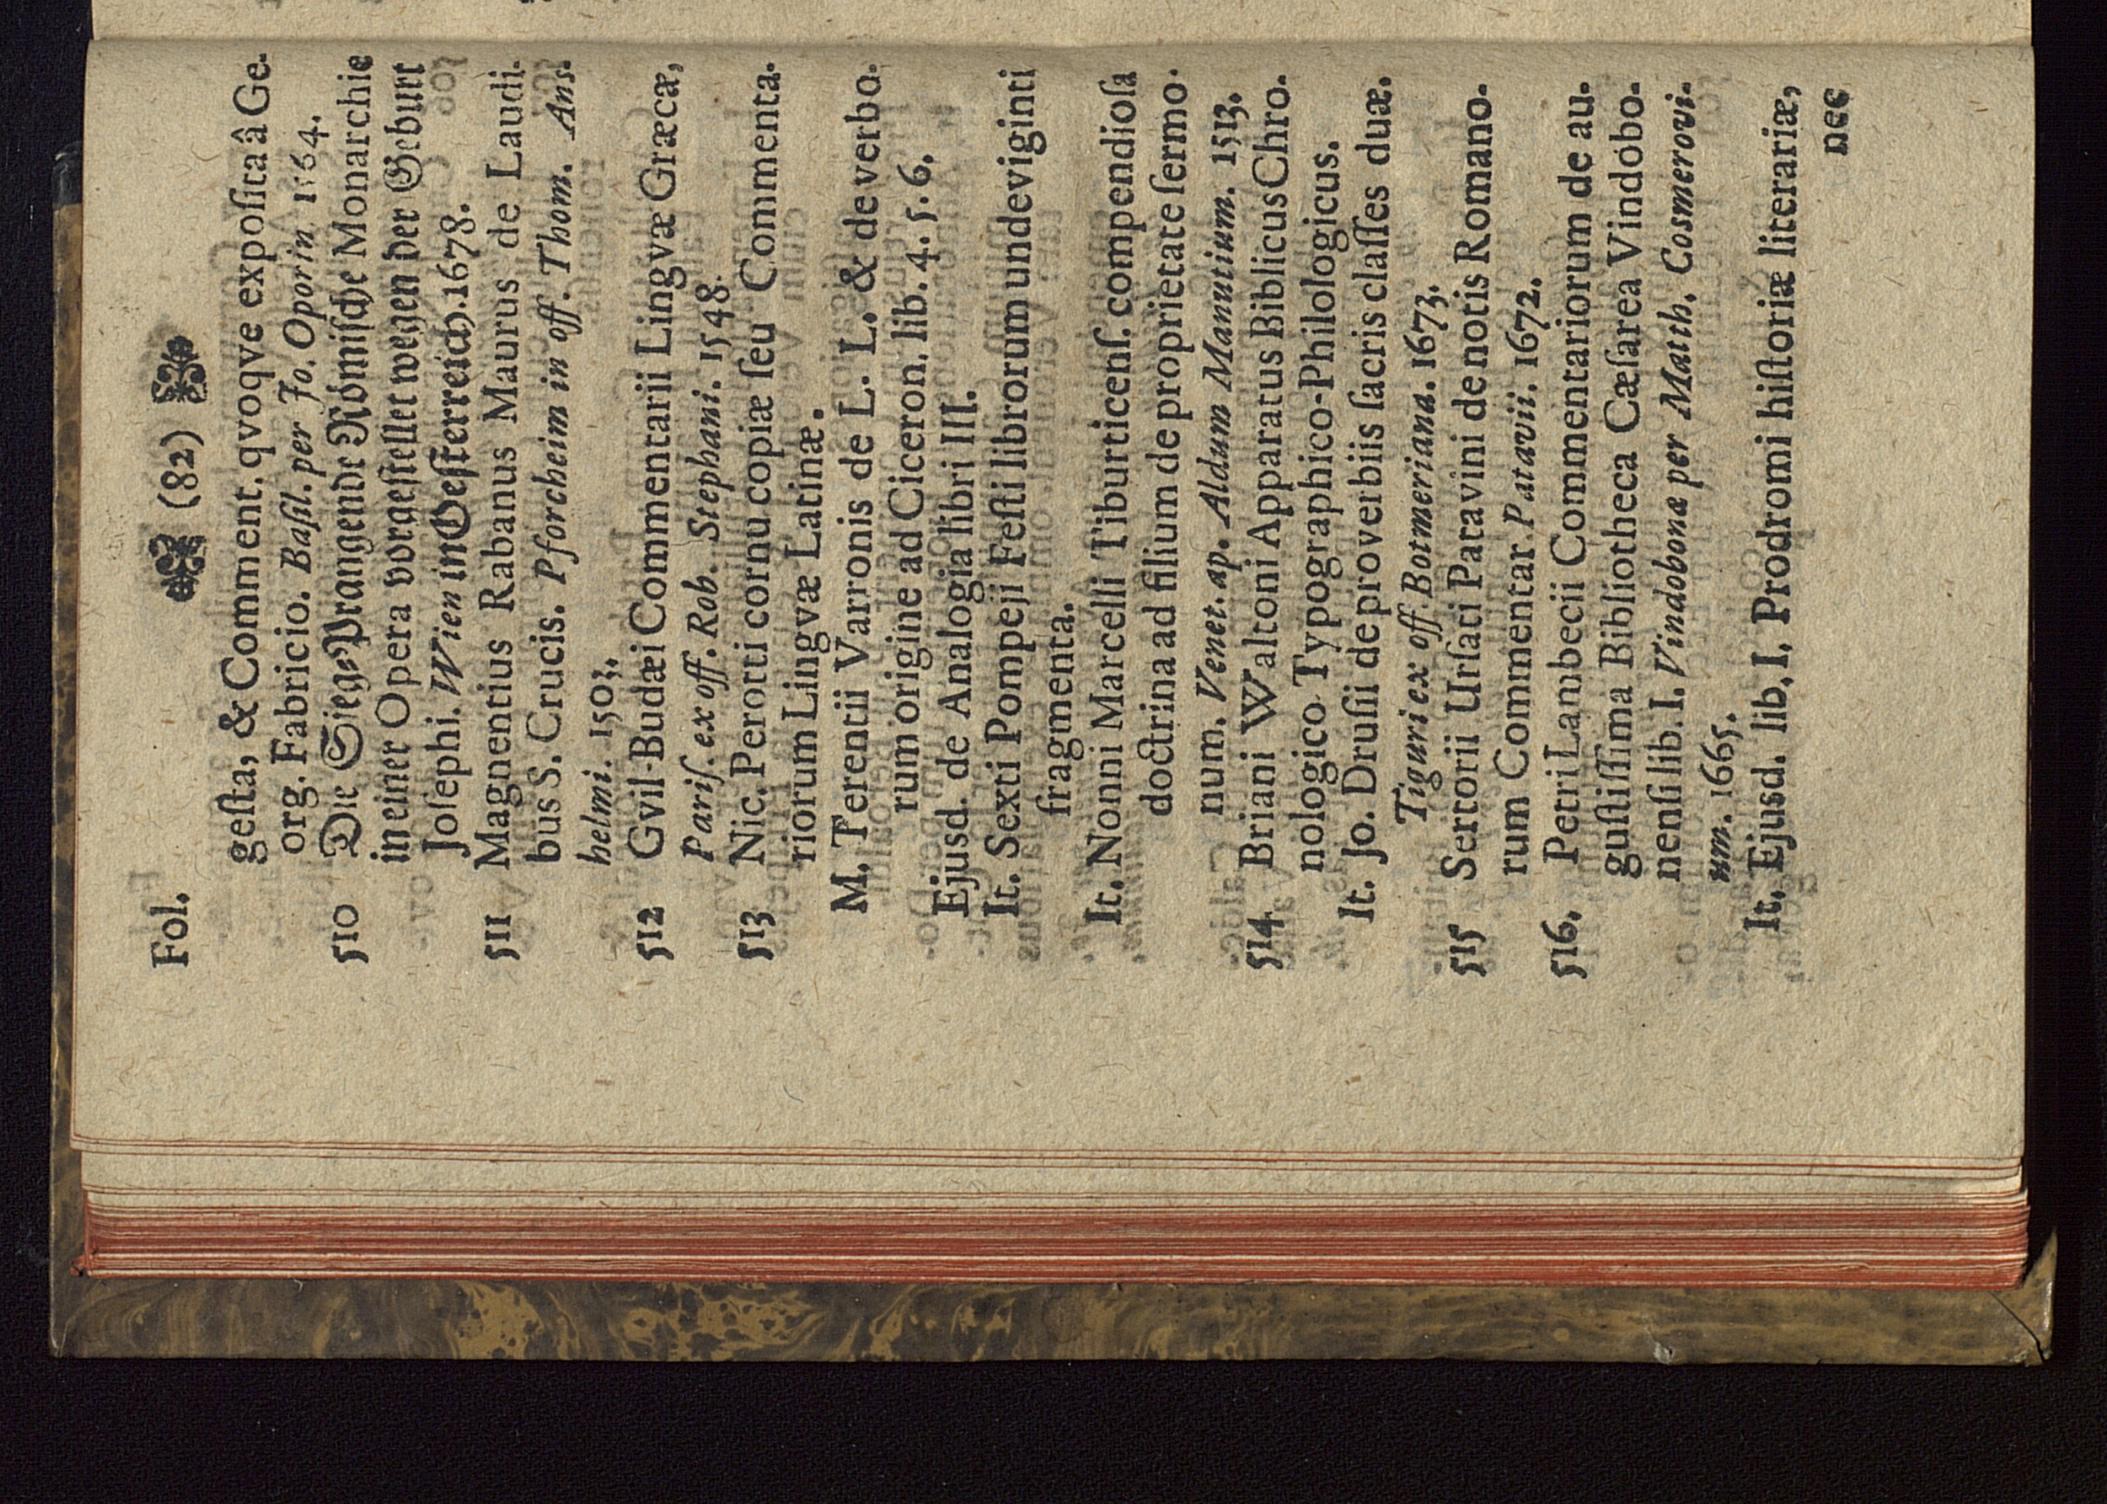 (82)
Fol.
geſta, & Comment. qvoqve expoſita â Ge-
org. Fabricio. Baſil. per Jo. Oporin. 1564.
510 Die Sieg-Prangende Römiſche Monarchie
in einer Opera vorgeſtellet wegen der Geburt
Joſephi. Wien in Oeſterreich. 1678.
511 Magnentius Rabanus Maurus de Laudi-
bus S. Crucis. Pforcheim in off. Thom. Ans-
helmi. 1503.
512 Gvil-Budæi Commentarii Lingvæ Græcæ,
Pariſ. ex off. Rob. Stephani. 1548.
513 Nic. Perotti cornu copiæ ſeu Commenta-
riorum Lingvæ Latinæ.
M. Terentii Varronis de L. L. & de verbo-
rum origine ad Ciceron. lib. 4. 5. 6.
Ejusd. de Analogia libri III.
It. Sexti Pompeji Feſti librorum undeviginti
fragmenta.
It. Nonni Marcelli Tiburticenſ. compendioſa
doctrina ad filium de proprietate ſermo-
num. Venet. ap. Aldum Manutium. 1513.
514 Briani Waltoni Apparatus Biblicus Chro-
nologico-Typographico-Philologicus.
It. Jo. Druſii de proverbiis ſacris claſſes duæ.
Tiguri ex off. Botmeriana. 1673.
515 Sertorii Urſati Patavini de notis Romano-
rum Commentar. Patavii. 1672.
516. Petri Lambecii Commentariorum de au-
guſtiſſima Bibliotheca Cæſarea Vindobo-
nenſi lib. I. Vindobonæ per Math. Cosmerovi-
um. 1665.
It. Ejusd. lib. I. Prodromi hiſtoriæ literariæ,
nec